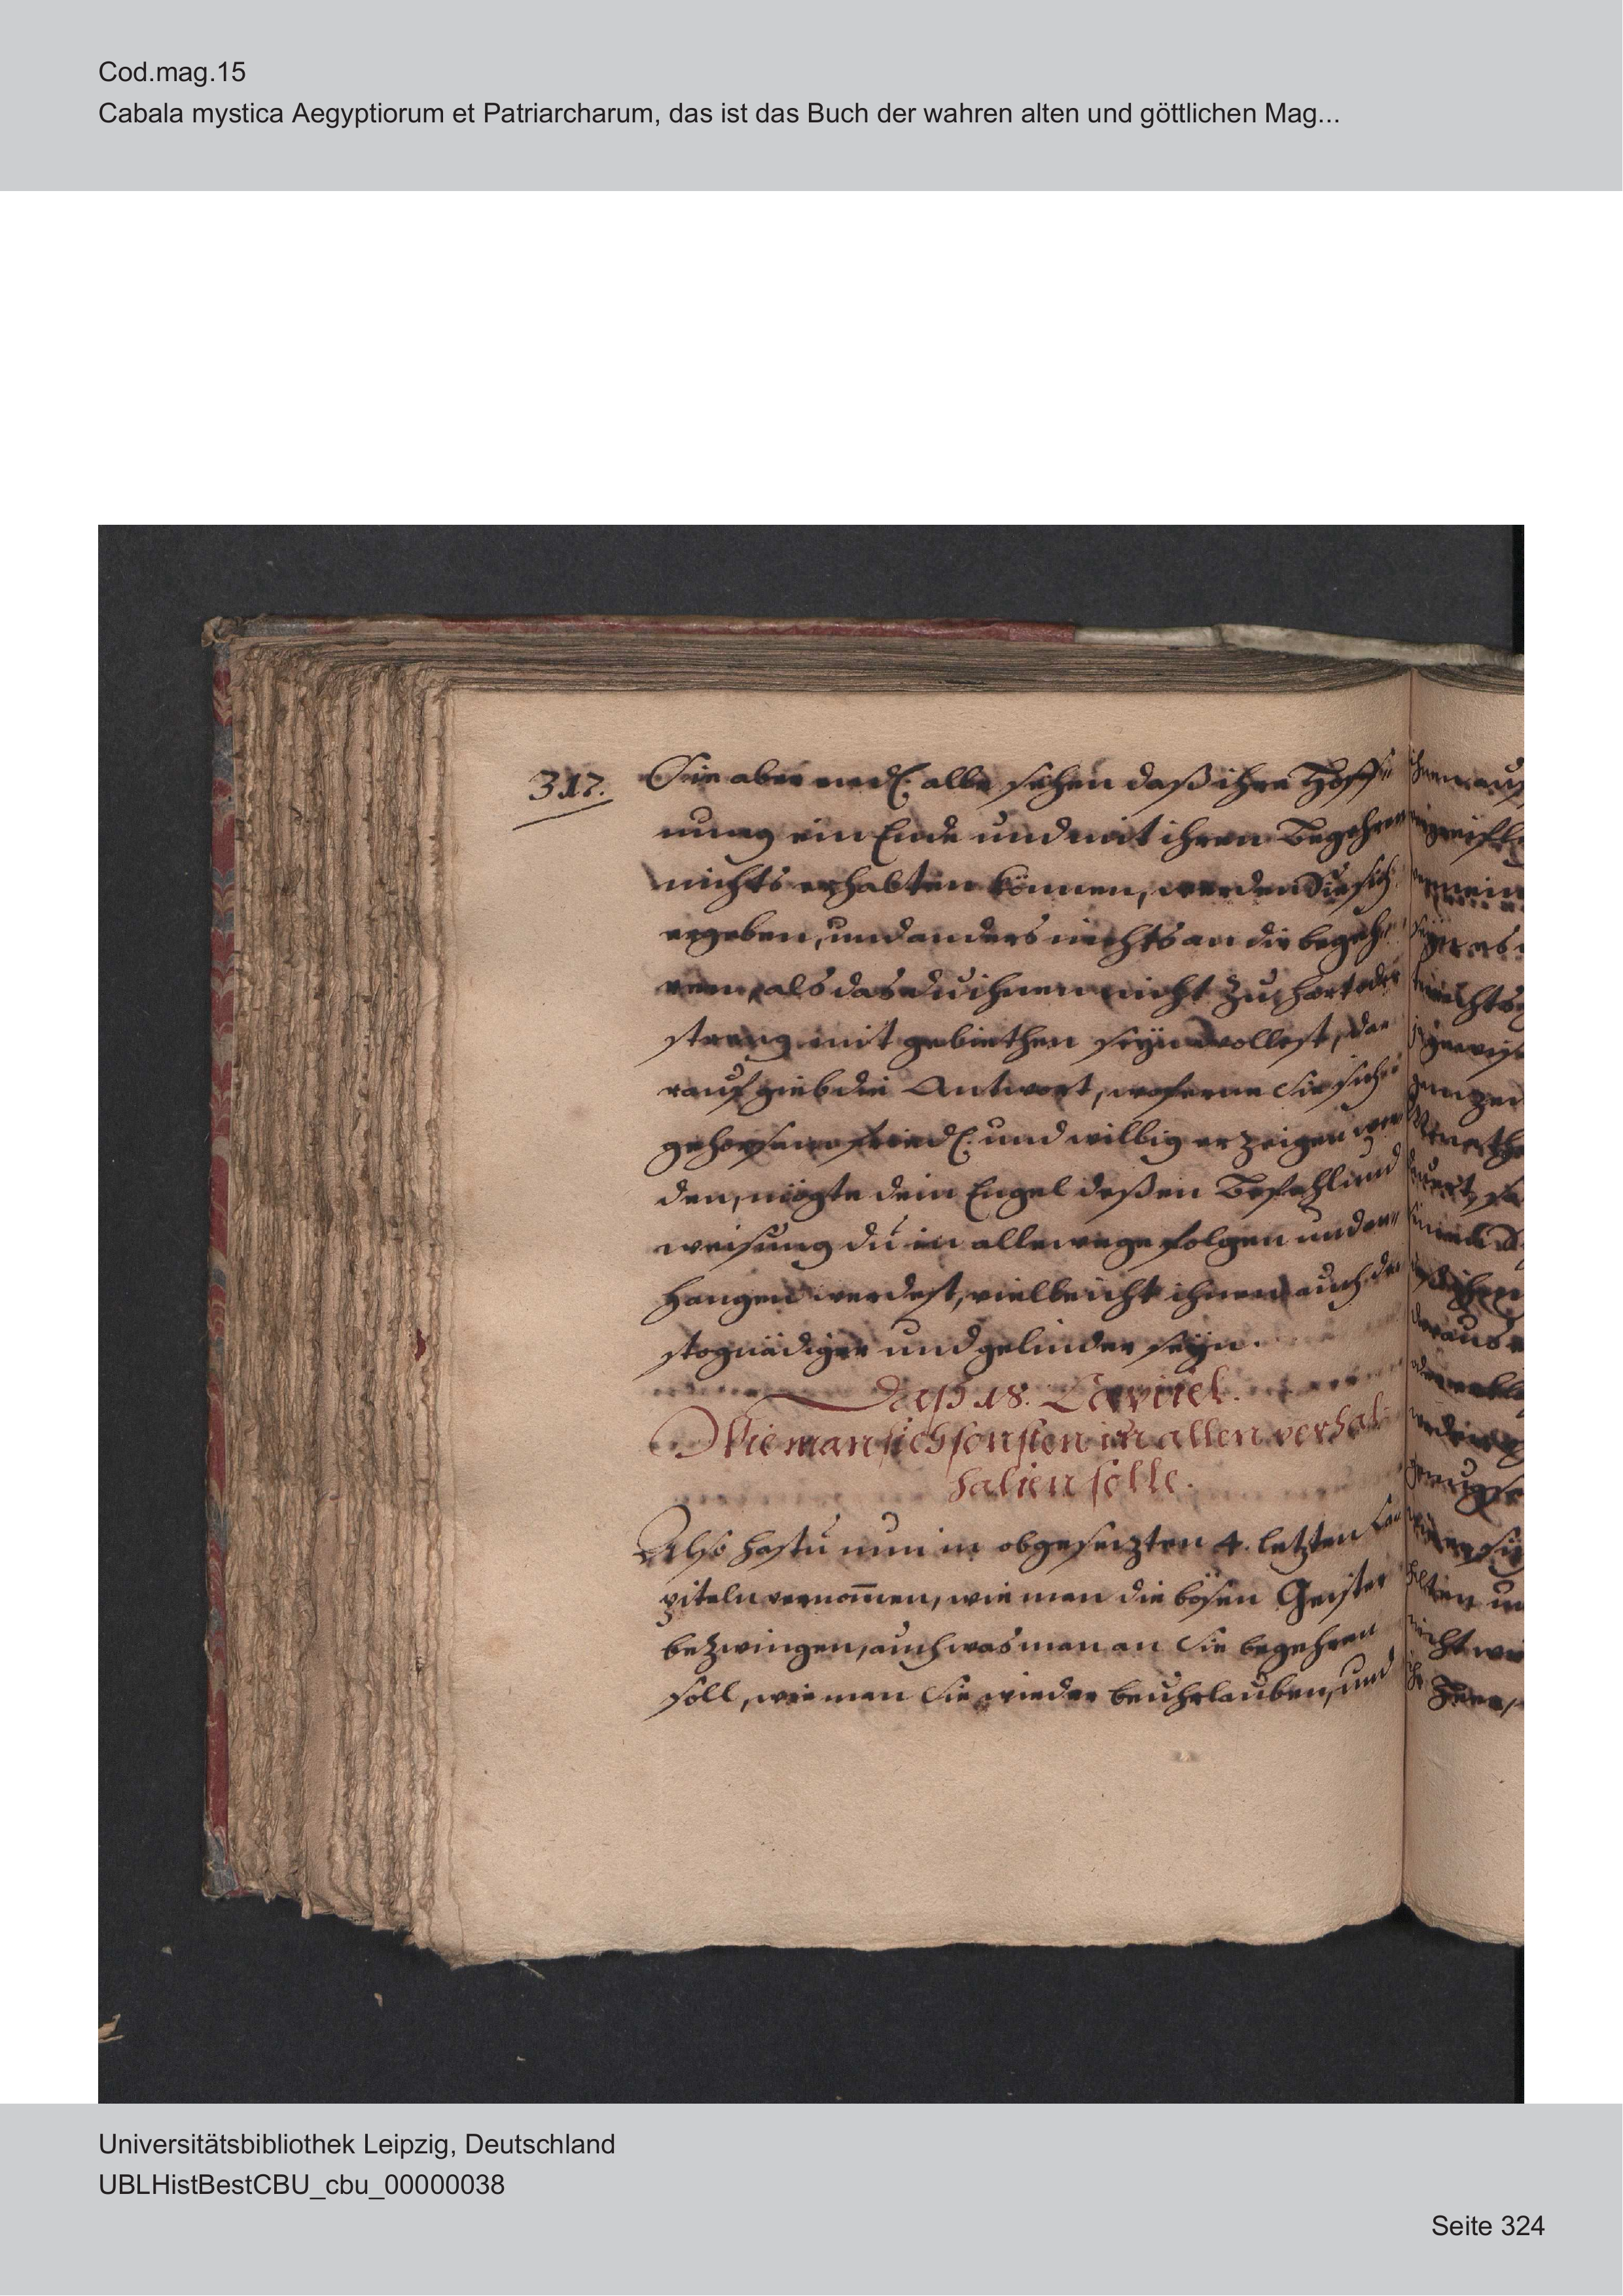 Cod.mag.15
Cabala mystica Aegyptiorum et Patriarcharum, das ist das Buch der wahren alten und göttlichen Mag...
317.
Sie aber endl: alle sehen daß ihre Hoff
nung ein Ende und mit ihren Begehren
nichts erhalten können, werden Sie sich
ergeben, und anders nichts an dir begeh
ren, als das du ihnen nicht zu hart oder
streng mit gebiethen seyn wollest, da
rauf gieb die Antwort, woferne Sie sich
gehorsam friedl: und willig erzeigen wer
den, mögte dein Engel deßen Befehl und
weisung du in allewege folgen und an
hangen werdest, vielleicht ihnen auch de
sto gnädiger und gelinder seyn.
Daß 18. Capitel.
Wie man sich sonsten in allen verhal
halten solle.
Also hastu nun in obgesezten 4. letzten Ca
piteln vernom̄en, wie man die bösen Geister
bezwingen, auch was man an Sie begehren
soll, wie man Sie wieder beuhrlauben, und
Universitätsbibliothek Leipzig, Deutschland
UBLHistBestCBU_cbu_00000038
Seite 324